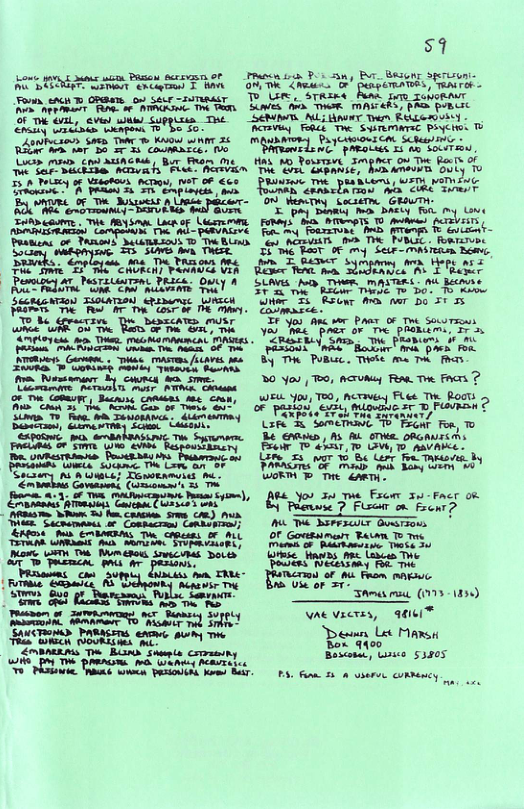 59
LONG HAVE I DEALT WITH PRISON ACTIVISTS OF
ALL DESCRIPT. WITHOUT EXCEPTION I HAVE
FOUND EACH TO OPERATE ON SELF-INTEREST
AND APPARENT FEAR OF ATTACKING THE ROOTS
OF THE EVIL, EVEN WHEN SUPPLIED THE
EASILY WIELDED WEAPONS TO DO SO.
CONFUCIUS SAID THAT TO KNOW WHAT IS
RIGHT AND NOT DO IT IS COWARDICE. NO
LUCID MIND CAN DISAGREE, BUT FROM ME
THE SELF-DESCRIBED ACTIVISTS FLEE. ACTIVISM
IS A POLICY OF VIGOROUS ACTION, NOT OF EGO
STROKING. A PRISON IS ITS EMPLOYEES, AND
BY NATURE OF THE BUSINESS A LARGE PERCENT-
AGE ARE EMOTIONALLY-DISTURBED AND QUITE
INADEQUATE. THE ABYSMAL LACK OF LEGITIMATE
ADMINISTRATION COMPOUNDS THE ALL-PERVASIVE
PROBLEMS OF PRISONS DELETERIOUS TO THE BLIND
SOCIETY OVERPAYING ITS SLAVES AND THEIR
DRIVERS. EMPLOYEES ARE THE PRISONS ARE
THE STATE IS THE CHURCH/PENANCE VIA
PENOLOGY AT PESTILENTIAL PRICE. ONLY A
FULL-FRONTAL WAR CAN ALLEVIATE THE
SEGREGATION ISOLATION EPIDEMIC WHICH
PROFITS THE FEW AT THE COST OF THE MANY.
TO BE EFFECTIVE THE DEDICATED MUST
WAGE WAR ON THE ROOTS OF THE EVIL, THE
EMPLOYEES AND THEIR MEGALOMANIACAL MASTERS.
PRISONS MALFUNCTION UNDER THE AEGIS OF THE
ATTORNEYS GENERAL. THESE MASTERS/SLAVES ARE
INURED TO WORSHIP MONEY THROUGH REWARD
AND PUNISHMENT BY CHURCH AND STATE.
LEGITIMATE ACTIVISTS MUST ATTACK CAREERS
OF THE CORRUPT, BECAUSE CAREERS ARE CASH,
AND CASH IS THE ACTUAL GOD OF THOSE EN-
SLAVED TO FEAR AND IGNORANCE. ELEMENTARY
DEDUCTION, ELEMENTARY SCHOOL LESSONS.
EXPOSING AND EMBARRASSING THE SYSTEMATIC
FAILURES OF STATE WHO EVADE RESPONSIBILITY
FOR UNRESTRAINED POWERDRUNKS PREDATING ON
PRISONERS WHILE SUCKING THE LIFE OUT OF
SOCIETY AS A WHOLE; IGNORAMUSES ALL.
EMBARRASS GOVERNORS (WISCONSIN'S IS THE
FORMER A.G. OF THIS MALFUNCTIONING PRISON SYSTEM),
EMBARRASS ATTORNEYS GENERAL (WISCO'S WAS
ARRESTED DRUNK IN HER CRASHED STATE CAR) AND
THEIR SECRETARIES OF CORRECTION CORRUPTION;
EXPOSE AND EMBARRASS THE CAREERS OF ALL
TITULAR WARDENS AND NOMINAL SUPERVISORS,
ALONG WITH THE NUMEROUS SINECURES DOLED
OUT TO POLITICAL PALS AT PRISONS.
PRISONERS CAN SUPPLY ENDLESS AND IRRE-
FUTABLE EVIDENCE AS WEAPONRY AGAINST THE
STATUS QUO OF PERFIDIOUS PUBLIC SERVANTS.
STATE OPEN RECORDS STATUTES AND THE FED
FREEDOM OF INFORMATION ACT READILY SUPPLY
ADDITIONAL ARMAMENT TO ASSAULT THE STATE-
SANCTIONED PARASITES EATING AWAY THE
TREE WHICH NOURISHES ALL.
EMBARRASS THE BLIND SHEEPLE CITIZENRY
WHO PAY THE PARASITES AND WEAKLY ACQUIESCE
TO PRISONER ABUSE WHICH PRISONERS KNOW BEST.
PREACH AND PUBLISH, PUT BRIGHT SPOTLIGHT
ON, THE CAREERS OF PERPETRATORS, TRAITORS
TO LIFE. STRIKE FEAR INTO IGNORANT
SLAVES AND THEIR MASTERS, PAID PUBLIC
SERVANTS ALL; HAUNT THEM RELIGIOUSLY.
ACTIVELY FORCE THE SYSTEMATIC PSYCHOS TO
MANDATORY PSYCHOLOGICAL SCREENING.
PATRONIZING PAROLEES IS NO SOLUTION,
HAS NO POSITIVE IMPACT ON THE ROOTS OF
THE EVIL EXPANSE, AND AMOUNTS ONLY TO
PRUNING THE PROBLEMS, WITH NOTHING
TOWARD ERADICATION AND CURE INTENT
ON HEALTHY SOCIETAL GROWTH.
I PAY DEARLY AND DAILY FOR MY LONE
FORAYS AND ATTEMPTS TO AWAKEN ACTIVISTS,
FOR MY FORTITUDE AND ATTEMPTS TO ENLIGHT-
EN ACTIVISTS AND THE PUBLIC. FORTITUDE
IS THE ROOT OF MY SELF-MASTERED BEING
AND I REJECT SYMPATHY AND HOPE AS I
REJECT FEAR AND IGNORANCE AS I REJECT
SLAVES AND THEIR MASTERS. ALL BECAUSE
IT IS THE RIGHT THING TO DO. TO KNOW
WHAT IS RIGHT AND NOT DO IT IS
COWARDICE.
IF YOU ARE NOT PART OF THE SOLUTIONS
YOU ARE PART OF THE PROBLEMS, IT IS
CREDIBLY SAID. THE PROBLEMS OF ALL
PRISONS ARE BOUGHT AND PAID FOR
BY THE PUBLIC. THOSE ARE THE FACTS.
DO YOU, TOO, ACTUALLY FEAR THE FACTS?
WILL YOU, TOO, ACTIVELY FLEE THE ROOTS
OF PRISON EVIL, ALLOWING IT TO FLOURISH?
EXPOSE IT ON THE INTERNET!
LIFE IS SOMETHING TO FIGHT FOR, TO
BE EARNED, AS ALL OTHER ORGANISMS
FIGHT TO EXIST, TO LIVE, TO ADVANCE.
LIFE IS NOT TO BE LEFT FOR TAKEOVER BY
PARASITES OF MIND AND BODY WITH NO
WORTH TO THE EARTH.
ARE YOU IN THE FIGHT IN-FACT OR
BY PRETENSE? FLIGHT OR FIGHT?
ALL THE DIFFICULT QUESTIONS
OF GOVERNMENT RELATE TO THE
MEANS OF RESTRAINING THOSE IN
WHOSE HANDS ARE LODGED THE
POWERS NECESSARY FOR THE
PROTECTION OF ALL FROM MAKING
BAD USE OF IT.
JAMES MILL (1773-1836)
VAE VICTIS, 98161*
DENNIS LEE MARSH
BOX 9900
BOSCOBEL, WISCO 53805
P.S. FEAR IS A USEFUL CURRENCY.